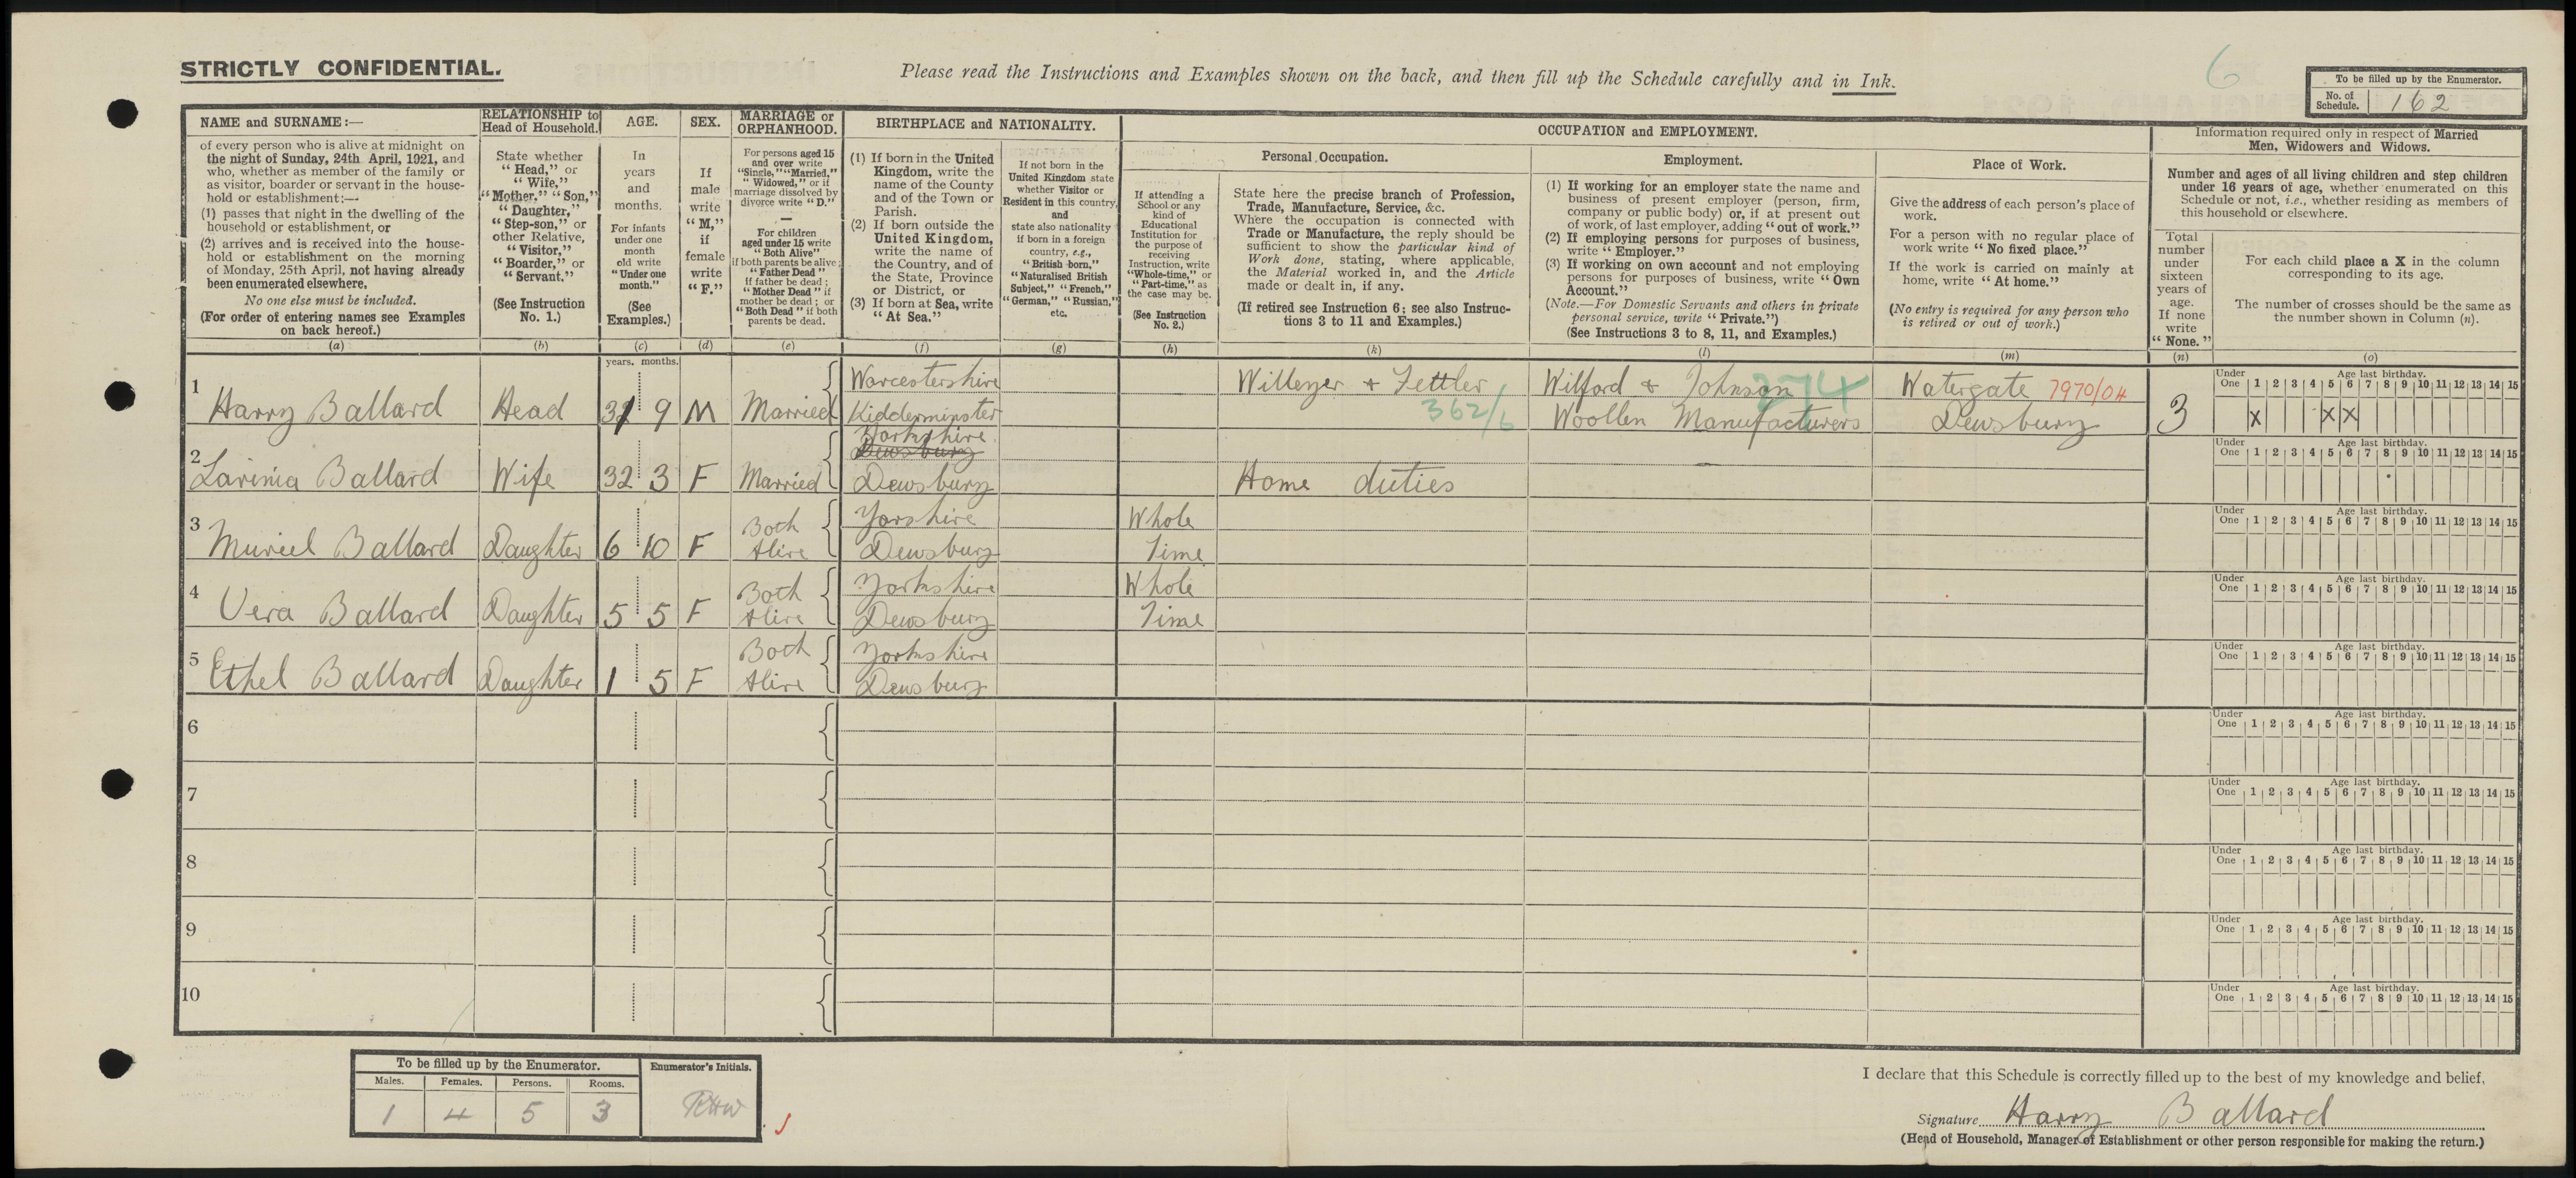 STRICTLY CONFIDENTIAL.
Please read the Instructions and Examples shown on the back, and then fill up the Schedule carefully and in Ink.
6
To be filled up by the Enumerator.
No. of Schedule. 162
NAME and SURNAME:—
of every person who is alive at midnight on
the night of Sunday, 24th April, 1921, and
who, whether as member of the family or
as visitor, boarder or servant in the house-
hold or establishment:—
(1) passes that night in the dwelling of the
household or establishment, or
(2) arrives and is received into the house-
hold or establishment on the morning
of Monday, 25th April, not having already
been enumerated elsewhere.
No one else must be included.
(For order of entering names see Examples
on back hereof.)
(a)
RELATIONSHIP to
Head of Household.
State whether
"Head," or
"Wife,"
"Mother," "Son,"
"Daughter,"
"Step-son," or
other Relative,
"Visitor,"
"Boarder," or
"Servant."
(See Instruction
No. 1.)
(b)
AGE.
In
years
and
months.
For infants
under one
month
old write
"Under one
month."
(See
Examples.)
(c)
SEX.
If
male
write
"M,"
if
female
write
"F."
(d)
MARRIAGE or
ORPHANHOOD.
For persons aged 15
and over write
"Single," "Married,"
"Widowed," or if
marriage dissolved by
divorce write "D."
—
For children
aged under 15 write
"Both Alive"
if both parents be alive;
"Father Dead"
if father be dead;
"Mother Dead" if
mother be dead; or
"Both Dead" if both
parents be dead.
(e)
BIRTHPLACE and NATIONALITY.
(1) If born in the United
Kingdom, write the
name of the County
and of the Town or
Parish.
(2) If born outside the
United Kingdom,
write the name of
the Country, and of
the State, Province
or District, or
(3) If born at Sea, write
"At Sea."
(f)
If not born in the
United Kingdom state
whether Visitor or
Resident in this country,
and
state also nationality
if born in a foreign
country, e.g.,
"British born,"
"Naturalised British
Subject," "French,"
"German," "Russian,"
etc.
(g)
OCCUPATION and EMPLOYMENT.
Personal Occupation.
If attending a
School or any
kind of
Educational
Institution for
the purpose of
receiving
Instruction, write
"Whole-time," or
"Part-time," as
the case may be.
(See Instruction
No. 2.)
(h)
State here the precise branch of Profession,
Trade, Manufacture, Service, &c.
Where the occupation is connected with
Trade or Manufacture, the reply should be
sufficient to show the particular kind of
Work done, stating, where applicable,
the Material worked in, and the Article
made or dealt in, if any.
(If retired see Instruction 6; see also Instruc-
tions 3 to 11 and Examples.)
(k)
Employment.
(1) If working for an employer state the name and
business of present employer (person, firm,
company or public body) or, if at present out
of work, of last employer, adding "out of work."
(2) If employing persons for purposes of business,
write "Employer."
(3) If working on own account and not employing
persons for purposes of business, write "Own
Account."
(Note.—For Domestic Servants and others in private
personal service, write "Private.")
(See Instructions 3 to 8, 11, and Examples.)
(l)
Place of Work.
Give the address of each person's place of
work.
For a person with no regular place of
work write "No fixed place."
If the work is carried on mainly at
home, write "At home."
(No entry is required for any person who
is retired or out of work.)
(m)
Information required only in respect of Married
Men, Widowers and Widows.
Number and ages of all living children and step children
under 16 years of age, whether enumerated on this
Schedule or not, i.e., whether residing as members of
this household or elsewhere.
Total
number
under
sixteen
years of
age.
If none
write
"None."
(n)
For each child place a X in the column
corresponding to its age.
The number of crosses should be the same as
the number shown in Column (n).
(o)
years. months.
1 Harry Ballard Head 31 9 M Married Worcestershire Kidderminster Willeyer & Fettler 362/6 Wilford & Johnson Woollen Manufacturers 374 Watergate Dewsbury 7970/04 3
Under One 1 2 3 4 5 6 7 8 9 10 11 12 13 14 15
Age last birthday.
X X X
2 Lavinia Ballard Wife 32 3 F Married Yorkshire Dewsbury Dewsbury Home duties —
Under One 1 2 3 4 5 6 7 8 9 10 11 12 13 14 15
Age last birthday.
3 Muriel Ballard Daughter 6 10 F Both Alive Yorshire Dewsbury Whole Time
Under One 1 2 3 4 5 6 7 8 9 10 11 12 13 14 15
Age last birthday.
4 Vera Ballard Daughter 5 5 F Both Alive Yorkshire Dewsbury Whole Time
Under One 1 2 3 4 5 6 7 8 9 10 11 12 13 14 15
Age last birthday.
5 Ethel Ballard Daughter 1 5 F Both Alive Yorkshire Dewsbury
Under One 1 2 3 4 5 6 7 8 9 10 11 12 13 14 15
Age last birthday.
6
Under One 1 2 3 4 5 6 7 8 9 10 11 12 13 14 15
Age last birthday.
7
Under One 1 2 3 4 5 6 7 8 9 10 11 12 13 14 15
Age last birthday.
8
Under One 1 2 3 4 5 6 7 8 9 10 11 12 13 14 15
Age last birthday.
9
Under One 1 2 3 4 5 6 7 8 9 10 11 12 13 14 15
Age last birthday.
10
Under One 1 2 3 4 5 6 7 8 9 10 11 12 13 14 15
Age last birthday.
To be filled up by the Enumerator.
Males. Females. Persons. Rooms.
1 4 5 3
Enumerator's Initials.
I declare that this Schedule is correctly filled up to the best of my knowledge and belief.
Signature Harry Ballard
(Head of Household, Manager of Establishment or other person responsible for making the return.)